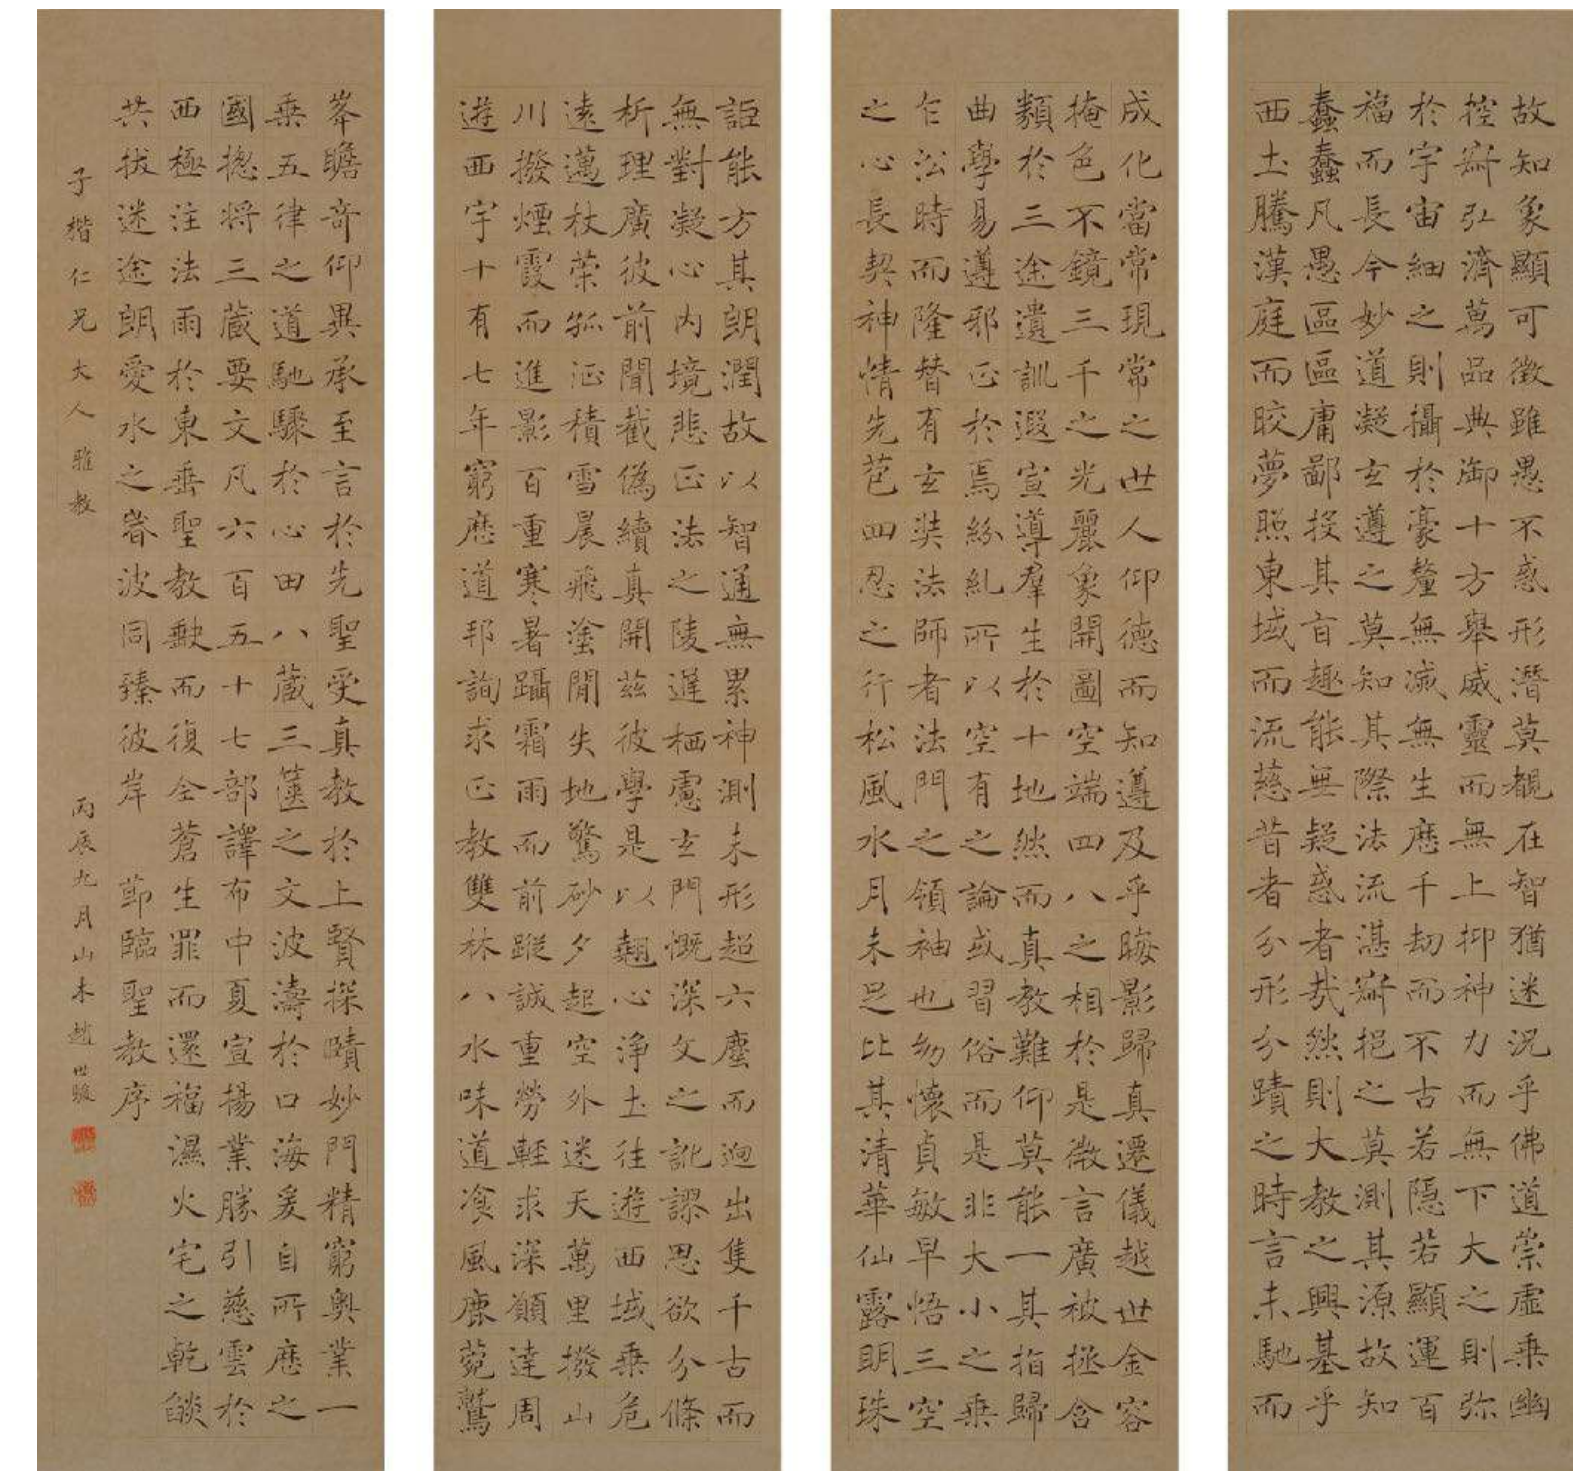 故知象顯可徵雖愚不惑形潛莫覩在智猶迷況乎佛道崇虛乗幽
控寂弘濟萬品典御十方舉威靈而無上抑神力而無下大之則弥
於宇宙細之則攝於豪釐無滅無生歷千劫而不古若隱若顯運百
福而長今妙道凝玄遵之莫知其際法流湛寂挹之莫測其源故知
蠢蠢凡愚區區庸鄙投其旨趣能無疑惑者哉然則大教之興基乎
西土騰漢庭而皎夢照東域而流慈昔者分形分蹟之時言未馳而
成化當常現常之世人仰德而知遵及乎晦影歸真遷儀越世金容
掩色不鏡三千之光麗象開圖空端四八之相於是微言廣被拯含
類於三途遺訓遐宣導羣生於十地然而真教難仰莫能一其指歸
曲學易遵邪正於焉紛糺所以空有之論或習俗而是非大小之乗
乍沿時而隆替有玄奘法師者法門之領袖也幼懷貞敏早悟三空
之心長契神情先苞四忍之行松風水月未足比其清華仙露明珠
詎能方其朗潤故以智通無累神測未形超六塵而迥出隻千古而
無對凝心內境悲正法之陵遲栖慮玄門慨深文之訛謬思欲分條
析理廣彼前聞截偽續真開茲彼學是以翹心淨土往遊西域乗危
遠邁杖策孤征積雪晨飛塗閒失地驚砂夕起空外迷天萬里撥山
川撥煙霞而進影百重寒暑躡霜雨而前蹤誠重勞輕求深願達周
遊西宇十有七年窮歷道邦詢求正教雙林八水味道湌風鹿菀鷲
峯瞻奇仰異承至言於先聖受真教於上賢探賾妙門精窮奧業一
乗五律之道馳驟於心田八藏三篋之文波濤於口海爰自所歷之
國揔將三藏要文凡六百五十七部譯布中夏宣揚業勝引慈雲於
西極注法雨於東垂聖教缺而復全蒼生罪而還福濕火宅之乾燄
共拔迷途朗愛水之昏波同臻彼岸 節臨聖教序
子楷仁兄大人雅教
丙辰九月山木趙世駿